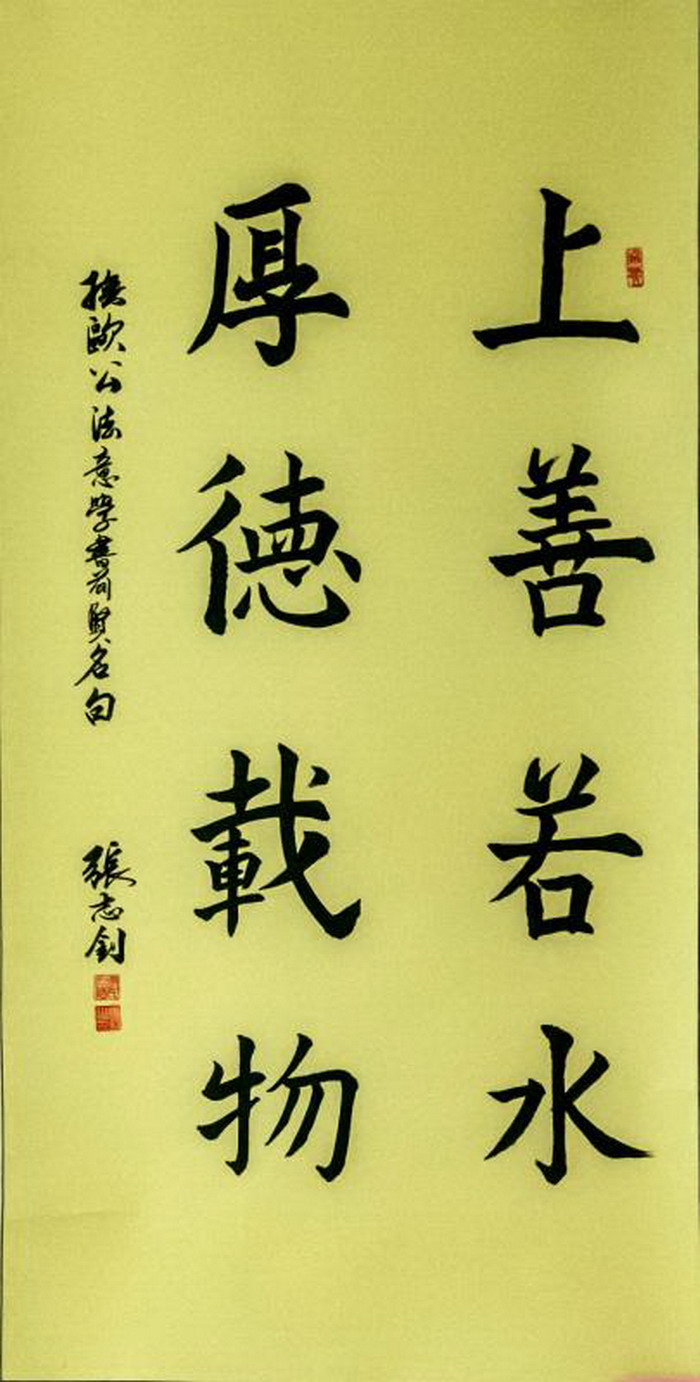 上善若水
厚德載物
歐公法意學書前賢名句
張志釗